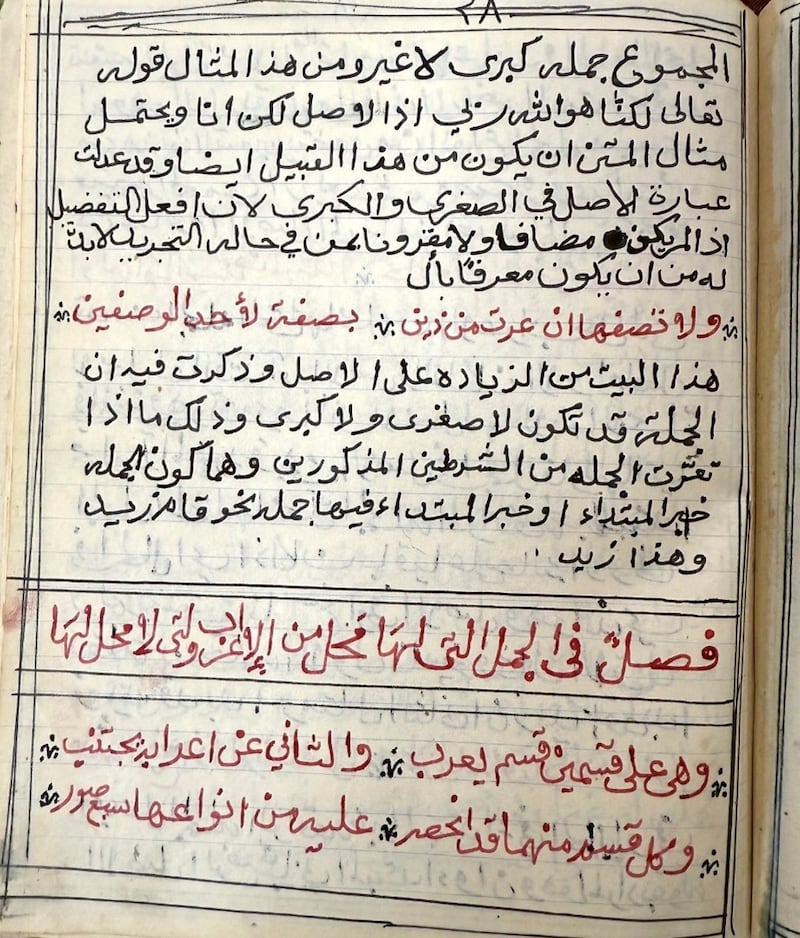 ٢٨
المجموع جمله كبرى لا غير ومن هذ المثال قوله
تعالى لكنّا هو الله ربي اذا الاصل لكن انا ويحتمل
مثال المتن ان يكون من هذا القبيل ايضا وقد عدلت
عبارة الاصل في الصغرى والكبرى لان افعل التفضيل
اذا لم يكن مضافا ولا مقرونا بمن في حاله التجريد لابد
له من ان يكون معرفا بأل
ولا تصفها ان عرت من ذين ۞ بصفة لأحد الوصفين
هذا البيت من الزياده على الاصل وذكرت فيه ان
الجملة قد تكون لا صغرى ولا كبرى وذلك ما اذا
تعرّت الجمله من الشرطين المذكورين وهما كون الجمله
خبر المبتداء او خبر المبتداء فيها جمله نحو قام زيد
وهذا زيد
فصل في الجمل التى لها محل من الإعراب والتى لا محل لها
وهى على قسمين قسم يعرب ۞ والثاني عن اعرابه يجتنب
وكل قسم منهما قد انحصر ۞ عليه من انواعها سبع صور